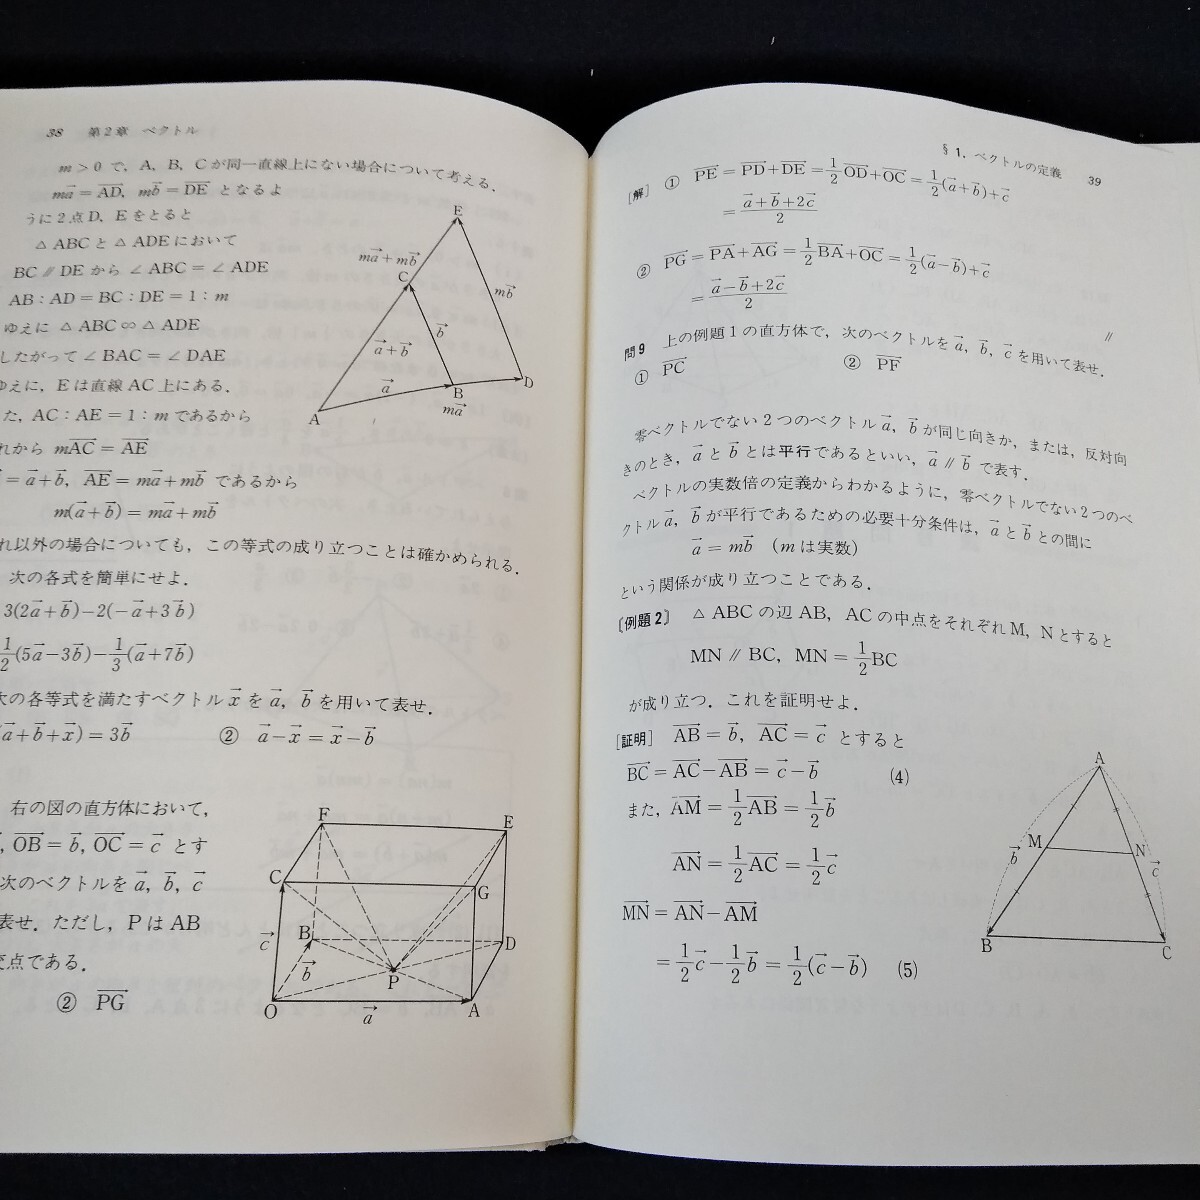 38 第2章 ベクトル
m＞0 で，A，B，C が同一直線上にない場合について考える．
m\vec{a}＝\overrightarrow{AD}，m\vec{b}＝\overrightarrow{DE} となるよ
うに2点D，Eをとると
△ABC と △ADE において
BC∥DE から ∠ABC＝∠ADE
AB：AD＝BC：DE＝1：m
ゆえに △ABC∽△ADE
したがって ∠BAC＝∠DAE
ゆえに，E は直線 AC 上にある．
た，AC：AE＝1：m であるから
れから m\overrightarrow{AC}＝\overrightarrow{AE}
＝\vec{a}+\vec{b}，\overrightarrow{AE}＝m\vec{a}+m\vec{b} であるから
m(\vec{a}+\vec{b})＝m\vec{a}+m\vec{b}
れ以外の場合についても，この等式の成り立つことは確かめられる．
次の各式を簡単にせよ．
3(2\vec{a}+\vec{b})−2(−\vec{a}+3\vec{b})
\frac{1}{2}(5\vec{a}−3\vec{b})−\frac{1}{3}(\vec{a}+7\vec{b})
次の各等式を満たすベクトル \vec{x} を \vec{a}，\vec{b} を用いて表せ．
\vec{a}+\vec{b}+\vec{x})＝3\vec{b} ② \vec{a}−\vec{x}＝\vec{x}−\vec{b}
右の図の直方体において，
，\overrightarrow{OB}＝\vec{b}，\overrightarrow{OC}＝\vec{c} とす
次のベクトルを \vec{a}，\vec{b}，\vec{c}
表せ．ただし，P は AB
交点である．
② \overrightarrow{PG}
E
m\vec{a}+m\vec{b}
C
m\vec{b}
\vec{b}
\vec{a}+\vec{b}
\vec{a}
D
B
m\vec{a}
A
F
E
C
G
\vec{c}
B
D
\vec{b}
P
O
\vec{a}
A
§1．ベクトルの定義 39
[解] ① \overrightarrow{PE}＝\overrightarrow{PD}+\overrightarrow{DE}＝\frac{1}{2}\overrightarrow{OD}+\overrightarrow{OC}＝\frac{1}{2}(\vec{a}+\vec{b})+\vec{c}
＝\frac{\vec{a}+\vec{b}+2\vec{c}}{2}
② \overrightarrow{PG}＝\overrightarrow{PA}+\overrightarrow{AG}＝\frac{1}{2}\overrightarrow{BA}+\overrightarrow{OC}＝\frac{1}{2}(\vec{a}−\vec{b})+\vec{c}
＝\frac{\vec{a}−\vec{b}+2\vec{c}}{2}
〃
問9 上の例題1の直方体で，次のベクトルを \vec{a}，\vec{b}，\vec{c} を用いて表せ．
① \overrightarrow{PC} ② \overrightarrow{PF}
零ベクトルでない2つのベクトル \vec{a}，\vec{b} が同じ向きか，または，反対向
きのとき，\vec{a} と \vec{b} とは平行であるといい，\vec{a}∥\vec{b} で表す．
ベクトルの実数倍の定義からわかるように，零ベクトルでない2つのベ
クトル \vec{a}，\vec{b} が平行であるための必要十分条件は，\vec{a} と \vec{b} との間に
\vec{a}＝m\vec{b} （m は実数）
という関係が成り立つことである．
〔例題2〕 △ABC の辺 AB，AC の中点をそれぞれ M，N とすると
MN∥BC，MN＝\frac{1}{2}BC
が成り立つ．これを証明せよ．
[証明] \overrightarrow{AB}＝\vec{b}，\overrightarrow{AC}＝\vec{c} とすると
\overrightarrow{BC}＝\overrightarrow{AC}−\overrightarrow{AB}＝\vec{c}−\vec{b} (4)
また，\overrightarrow{AM}＝\frac{1}{2}\overrightarrow{AB}＝\frac{1}{2}\vec{b}
\overrightarrow{AN}＝\frac{1}{2}\overrightarrow{AC}＝\frac{1}{2}\vec{c}
\overrightarrow{MN}＝\overrightarrow{AN}−\overrightarrow{AM}
＝\frac{1}{2}\vec{c}−\frac{1}{2}\vec{b}＝\frac{1}{2}(\vec{c}−\vec{b}) (5)
A
M
N
\vec{b}
\vec{c}
B
C